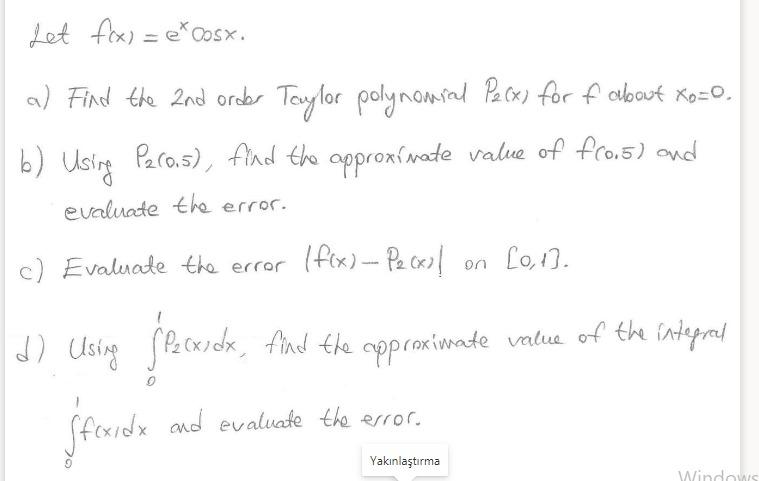 Let f(x) = eˣ cosx.
a) Find the 2nd order Taylor polynomial P₂(x) for f about x₀=0.
b) Using P₂(0.5), find the approximate value of f(0.5) and
evaluate the error.
c) Evaluate the error |f(x) - P₂(x)| on [0,1].
d) Using ∫₀¹ P₂(x)dx, find the approximate value of the integral
∫₀¹ f(x)dx and evaluate the error.
Yakınlaştırma
Windows